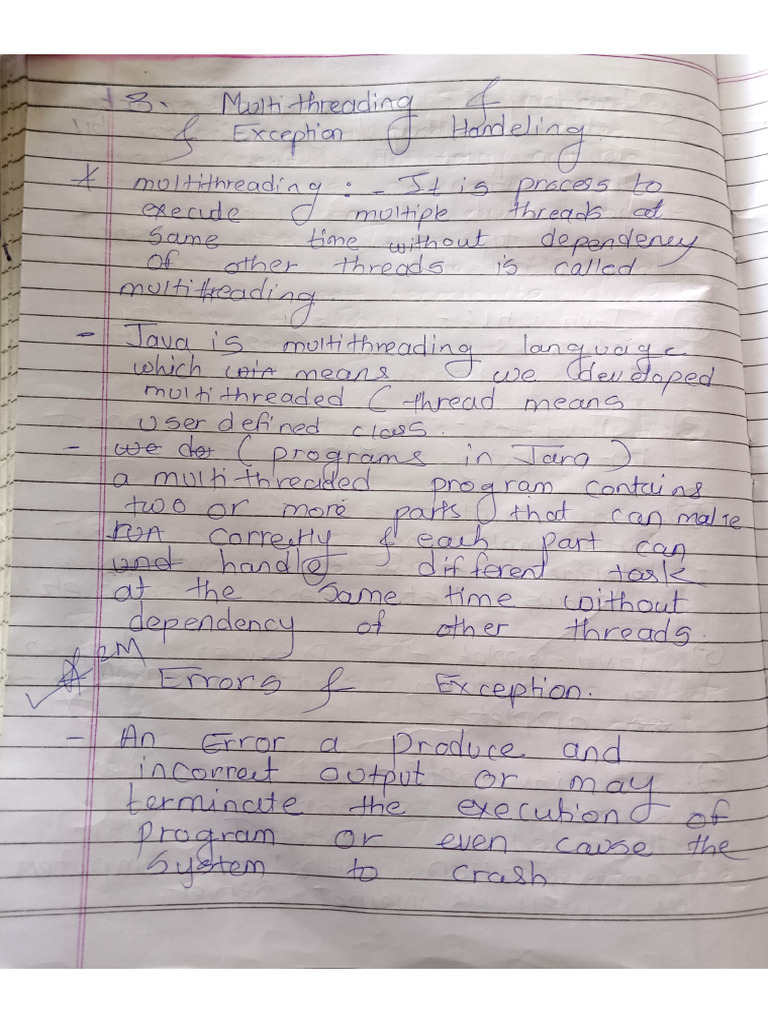 3. Multithreading &
& Exception Handeling.
* multithreading : - It is process to
execude multiple threads at
same time without dependency
of other threads is called
multitreading
- Java is multithreading language
which means we developed
multithreaded ( thread means
user defined class.
- we do ( programs in Java )
a multithreaded program contains
two or more parts that can make
run correctly & each part can
and handle different task
at the same time without
dependency of other threads.
2M
* Errors & Exception.
- An Error a produce and
incorrect output or may
terminate the execution of
program or even cause the
system to crash